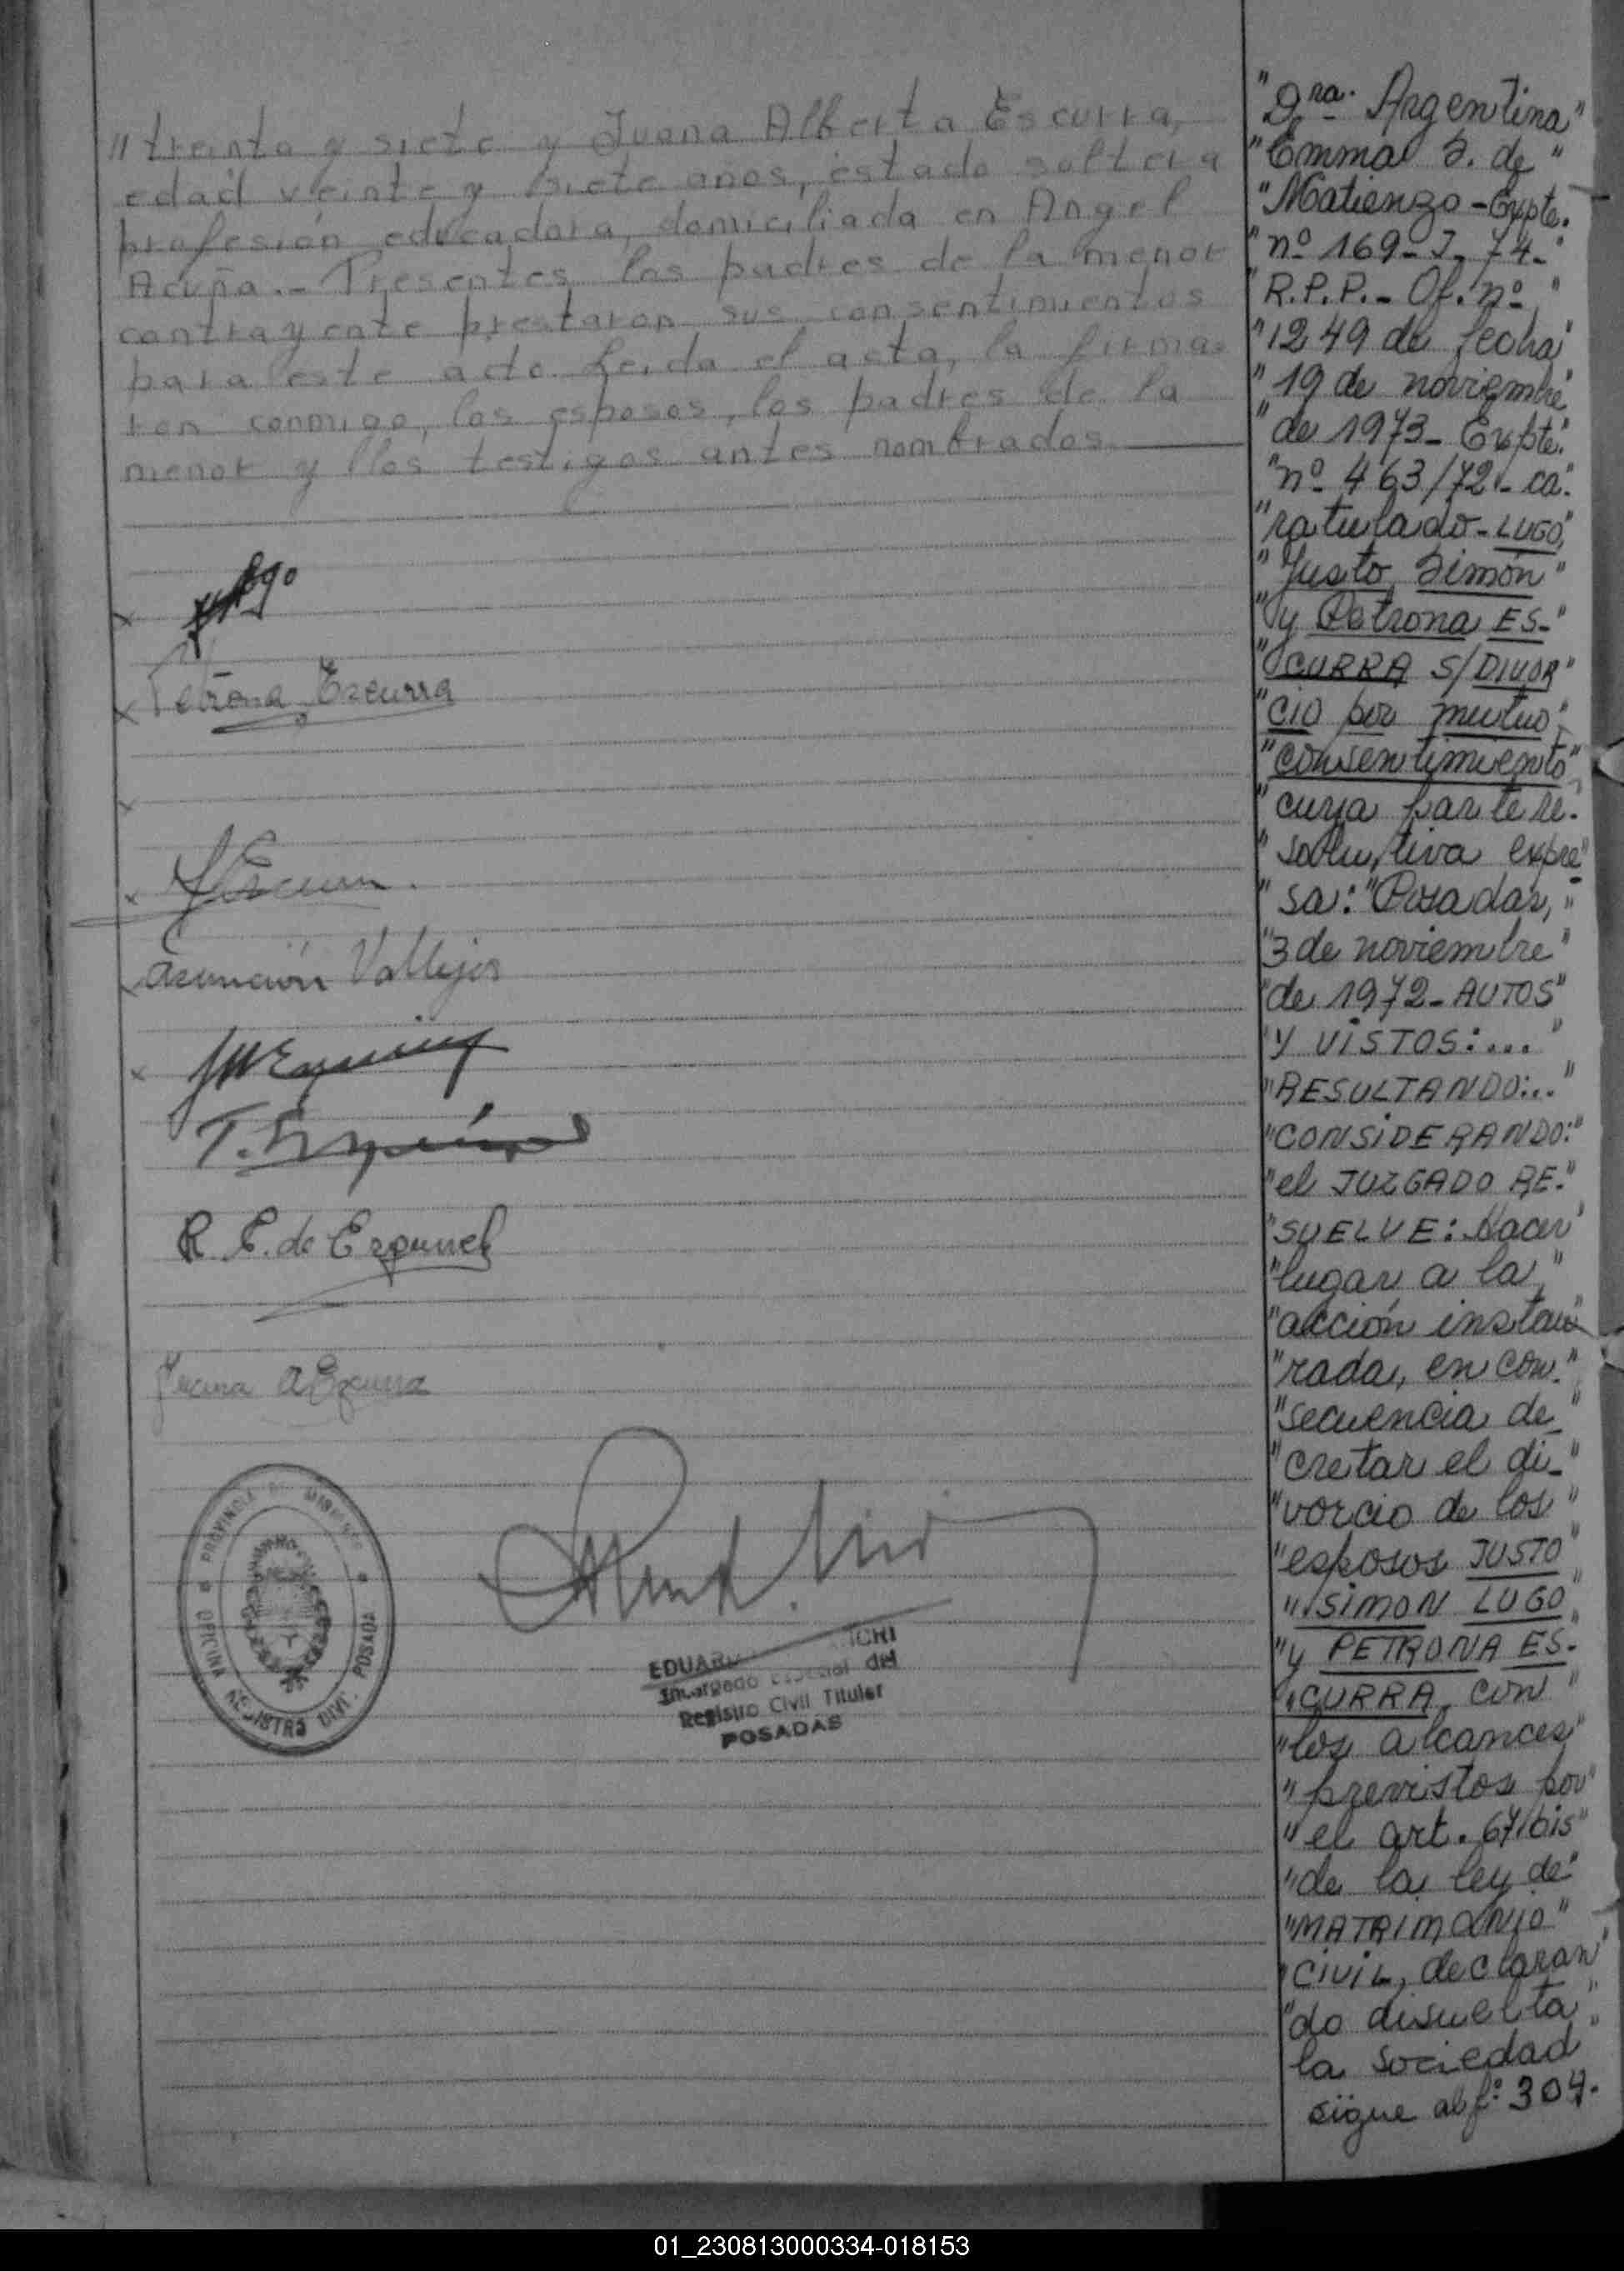 "treinta y siete y Juana Alberta Escurra,
edad veinte y siete años, estado soltera
profesión educadora, domiciliada en Angel
Acuña.- Presentes los padres de la menor
contrayente prestaron sus consentimientos
para este acto. Leida el acta, la firma=
ron conmigo, los esposos, los padres de la
menor y los testigos antes nombrados.
x
x Petrona Ezcurra
x
x
Asunción Vallejos
x
R. E. de Ezquivel
Juana A Ezcurra
PROVINCIA DE MISIONES
OFICINA REGISTRO CIVIL POSADAS
EDUAR ICHI
Encargado Especial del
Registro Civil Titular
POSADAS
"Dra. Argentina"
"Emma S. de"
"Matienzo - Expte.
"nº 169- J- 74-"
"R.P.P.- Of. nº"
"1249 de fecha"
"19 de noviembre
"de 1973- Expte."
"nº 463/72- ca-"
"ratulado- LUGO,"
"Justo Simón"
"y Petrona ES-"
"CURRA S/DIVOR"
"CIO por mutuo"
"consentimiento"
"cuya parte re-
"solutiva expre"
"sa: "Posadas,"
"3 de noviembre"
"de 1972- AUTOS"
"Y VISTOS:..."
"RESULTANDO:.."
"CONSIDERANDO:"
"el JUZGADO RE-"
"SUELVE: Hacer"
"lugar a la"
"acción instau
"rada, en con-"
"secuencia de-"
"cretar el di-"
"vorcio de los"
"esposos JUSTO"
"SIMON LUGO"
"y PETRONA ES-
"CURRA, con"
"los alcances"
"previstos por"
"el art. 67 bis"
"de la ley de"
"MATRIMONIO"
"CIVIL, declaran"
"do disuelta"
la sociedad"
sigue al fº 304.
01_230813000334-018153